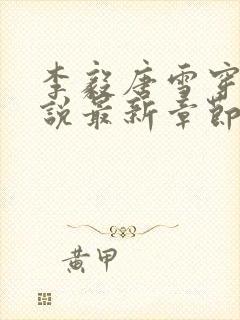 李毅唐雪穿
说最新章节
黄甲